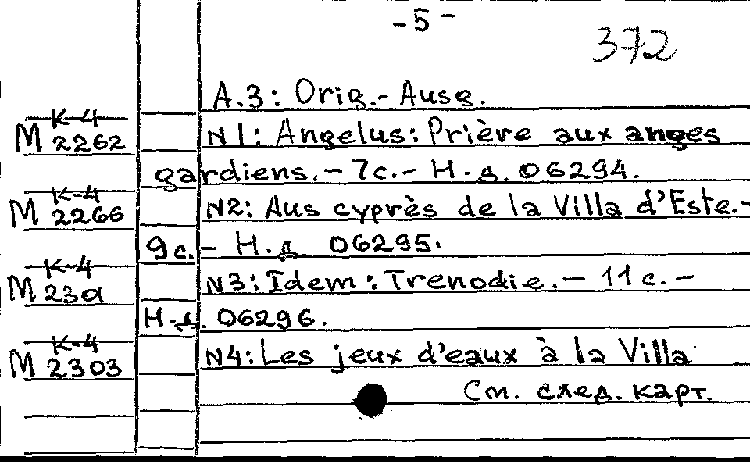 -5-
372
A.3: Orig.- Ausg.
K-4
M 2262
N1: Angelus: Prière aux anges
gardiens.- 7с.- Н.д. 06294.
K-4
M 2266
N2: Aus cyprès de la Villa d'Este.-
9с.- Н.д 06295.
K-4
M
N3: Idem: Trenodie.- 11с.-
Н.д. 06296.
K-4
M 2303
N4: Les jeux d'eaux à la Villa
См. след. карт.